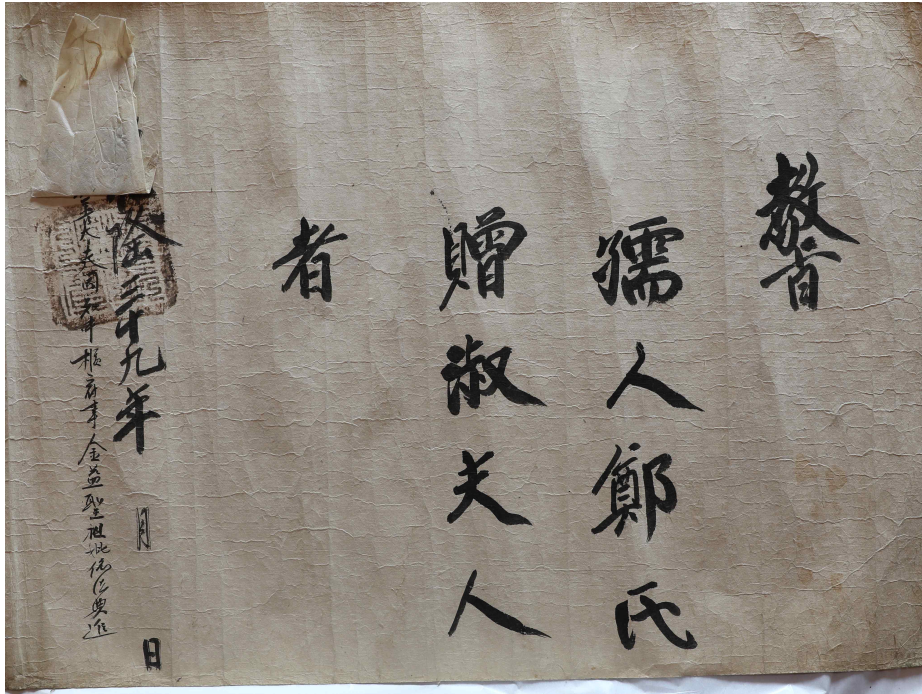 敎旨
孺人鄭氏
贈淑夫人
者
隆三十九年 月 日
善大夫同知中樞府事金益聖祖妣依法典追